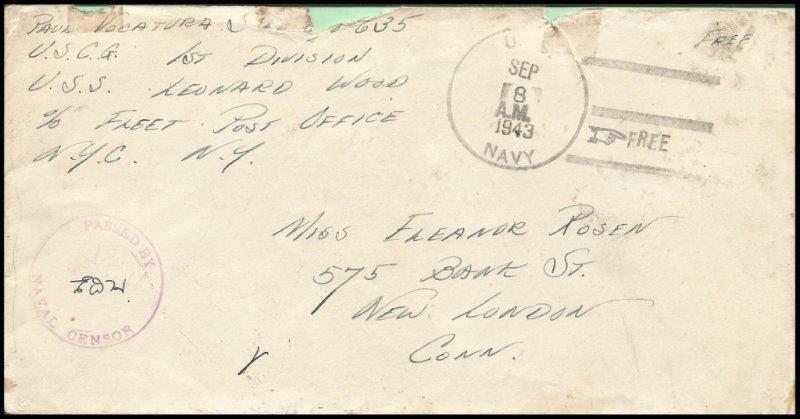 Paul Vocatura S 635
U.S.C.G. 1st Division
U.S.S. Leonard Wood
c/o Fleet Post Office
N.Y.C. N.Y.
Free
U.
SEP
8
A.M.
1943
NAVY
FREE
PASSED BY
NAVAL CENSOR
Miss Eleanor Rosen
575 Bank St.
New London
Conn.